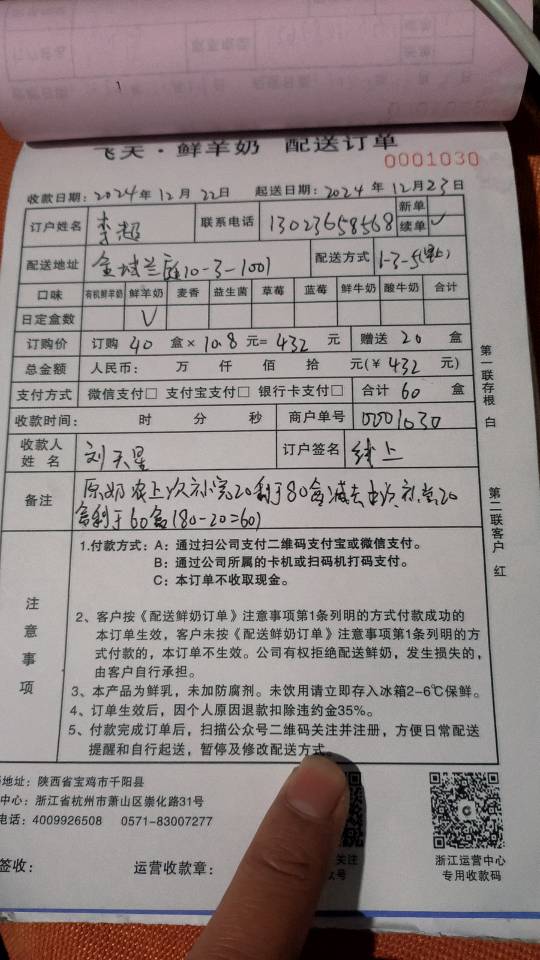 飞天·鲜羊奶 配送订单
0001030
收款日期：2024年12月22日 起送日期：2024年12月23日
订户姓名 李超 联系电话 13023658568 新单
续单 ✓
配送地址 金城兰庭10-3-1001 配送方式 1-3-5(晚上)
口味 有机鲜羊奶 鲜羊奶 麦香 益生菌 草莓 蓝莓 鲜牛奶 酸牛奶 合计
日定盒数 V
订购价 订购 40 盒×10.8元=432 元 赠送 20 盒
总金额 人民币： 万 仟 佰 拾 元(￥432 元)
支付方式 微信支付□ 支付宝支付□ 银行卡支付□ 合计 60 盒
收款时间： 时 分 秒 商户单号 0001030
收款人姓名 刘天星 订户签名 线上
备注 原奶农上次补完20剩于80盒减去此次补完20
盒剩于60盒(80-20=60)
注意事项
1.付款方式：A：通过扫公司支付二维码支付宝或微信支付。
B：通过公司所属的卡机或扫码机打码支付。
C：本订单不收取现金。
2、客户按《配送鲜奶订单》注意事项第1条列明的方式付款成功的
本订单生效，客户未按《配送鲜奶订单》注意事项第1条列明的方
式付款的，本订单不生效。公司有权拒绝配送鲜奶，发生损失的，
由客户自行承担。
3、本产品为鲜乳，未加防腐剂。未饮用请立即存入冰箱2-6℃保鲜。
4、订单生效后，因个人原因退款扣除违约金35%。
5、付款完成订单后，扫描公众号二维码关注并注册，方便日常配送
提醒和自行起送，暂停及修改配送方式。
第一联存根 白
第二联客户 红
地址：陕西省宝鸡市千阳县
中心：浙江省杭州市萧山区崇化路31号
电话：4009926508 0571-83007277
签收： 运营收款章：
关注
众号
浙江运营中心
专用收款码